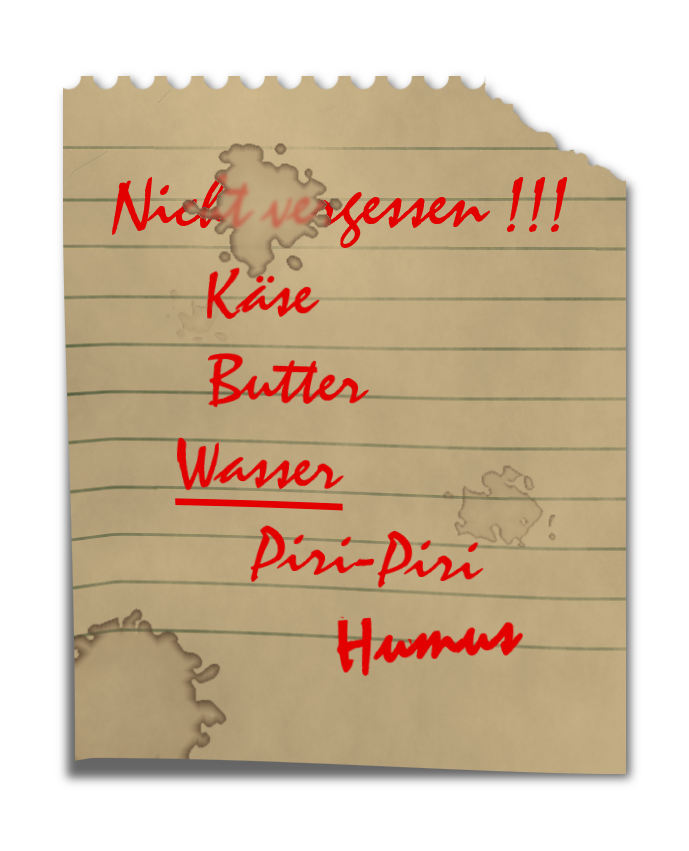 Nicht vergessen !!!
Käse
Butter
Wasser
Piri-Piri
Humus